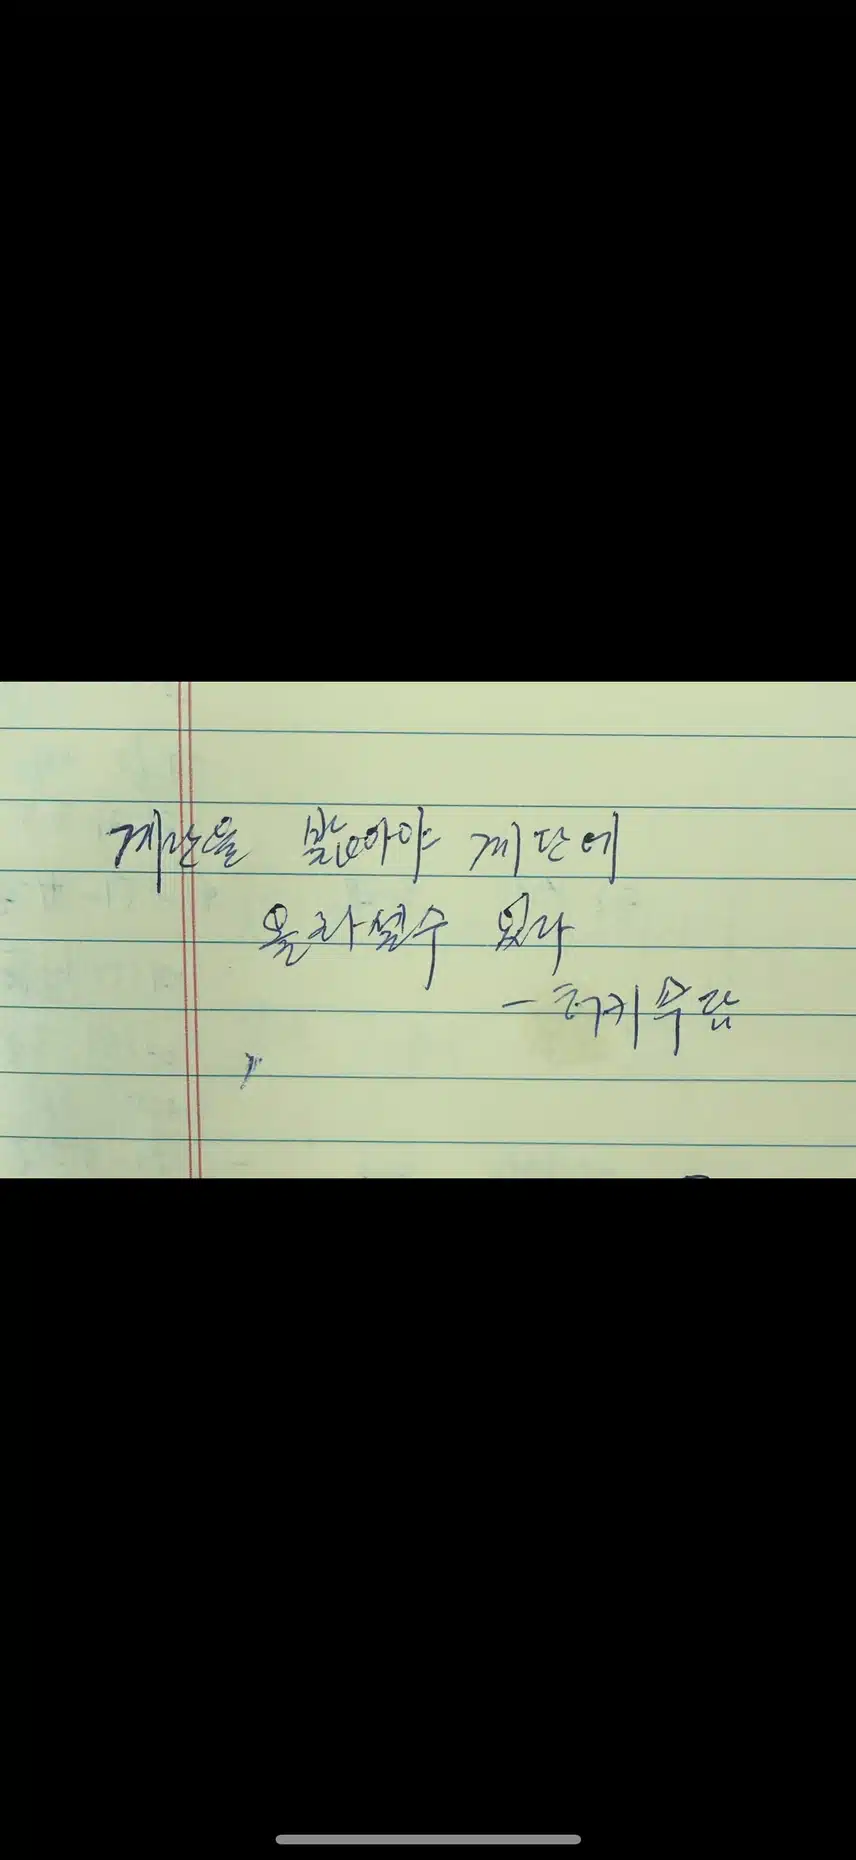 계단을 밟아야 계단에
올라설수 있다
- 터키 속담